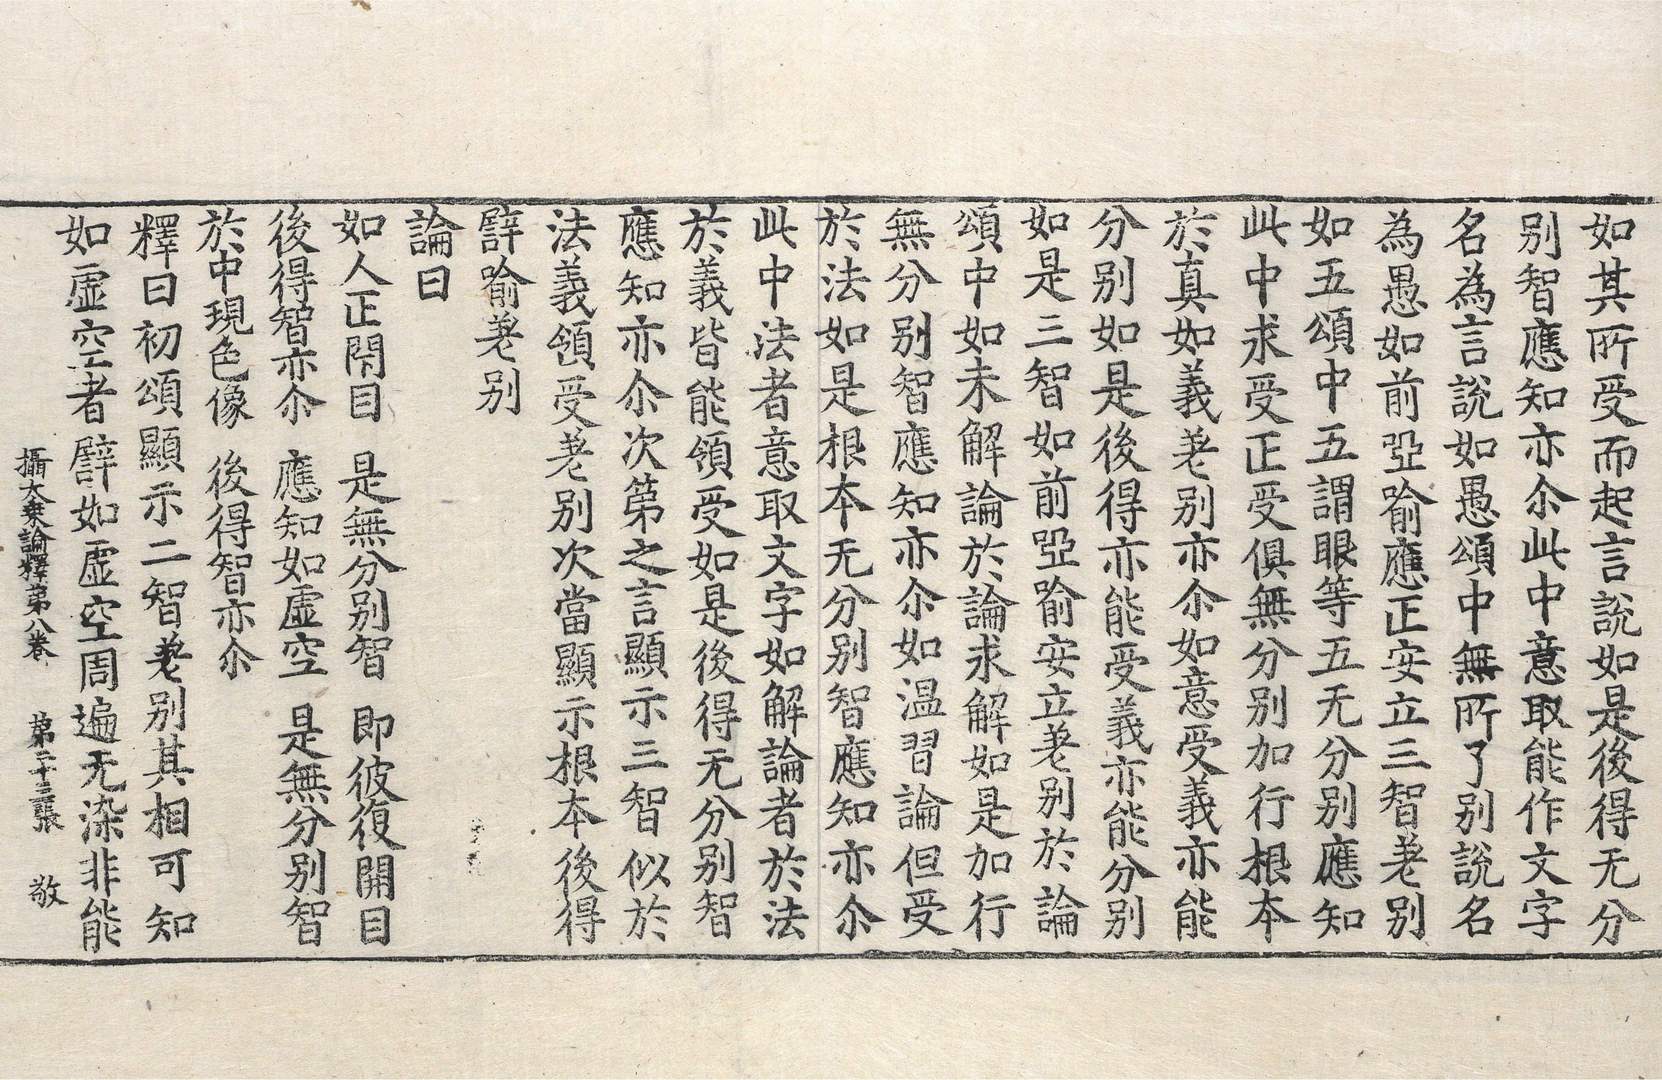 如其所受而起言說如是後得无分
別智應知亦尒此中意取能作文字
名為言說如愚頌中無所了別說名
為愚如前瘂喻應正安立三智差別
如五頌中五謂眼等五无分別應知
此中求受正受俱無分別加行根本
於真如義差別亦尒如意受義亦能
分別如是後得亦能受義亦能分別
如是三智如前瘂喻安立差別於論
頌中如未解論於論求解如是加行
無分別智應知亦尒如温習論但受
於法如是根本无分別智應知亦尒
此中法者意取文字如解論者於法
於義皆能領受如是後得无分別智
應知亦尒次第之言顯示三智似於
法義領受差別次當顯示根本後得
譬喻差別
論曰
如人正閇目 是無分別智 即彼復開目
後得智亦尒 應知如虛空 是無分別智
於中現色像 後得智亦尒
釋曰初頌顯示二智差別其相可知
如虛空者譬如虛空周遍无染非能
攝大乘論釋第八卷 第二十三張 敬